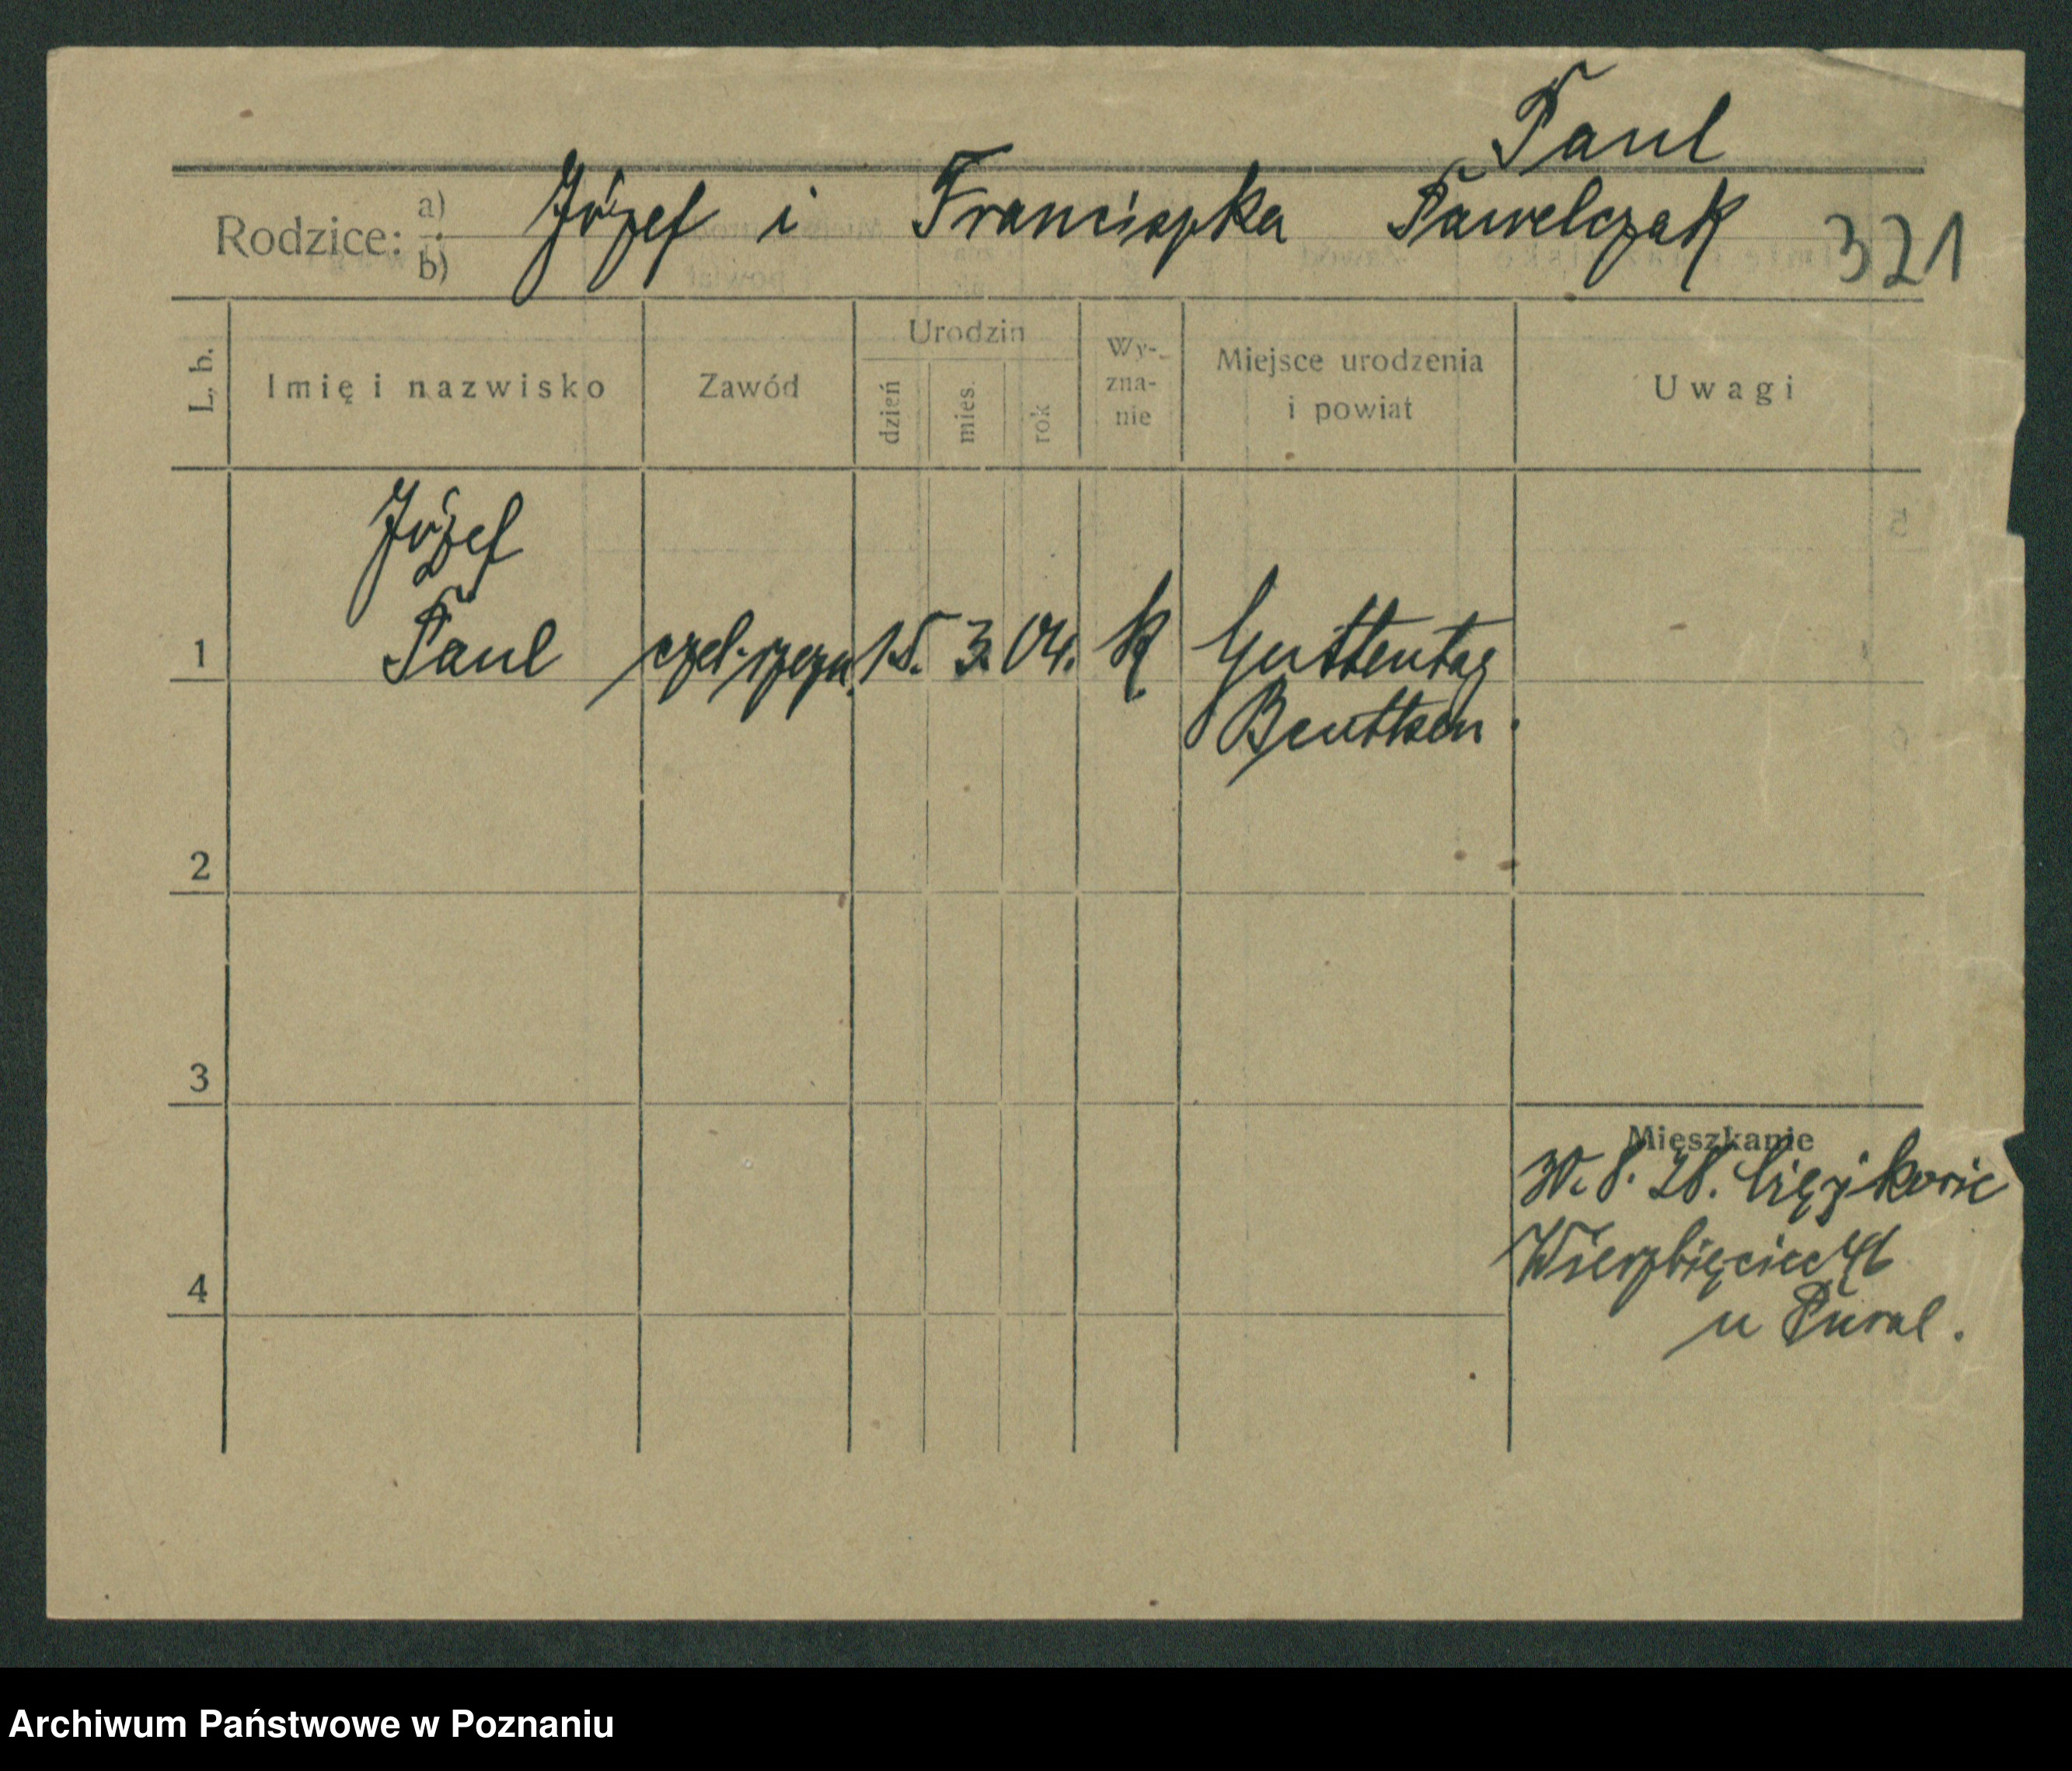 Paul
Rodzice: a) b) Józef i Franciszka Pawelczak 321
L. b. Imię i nazwisko Zawód Urodzin dzień mies. rok Wy-zna-nie Miejsce urodzenia i powiat Uwagi
Józef
1 Paul czel. rzeźn. 15. 3. 04. K Guttentag
Beuthen.
2
3
Mieszkanie
30. 8. 28.
4 Wierzbięcice
u
Archiwum Państwowe w Poznaniu